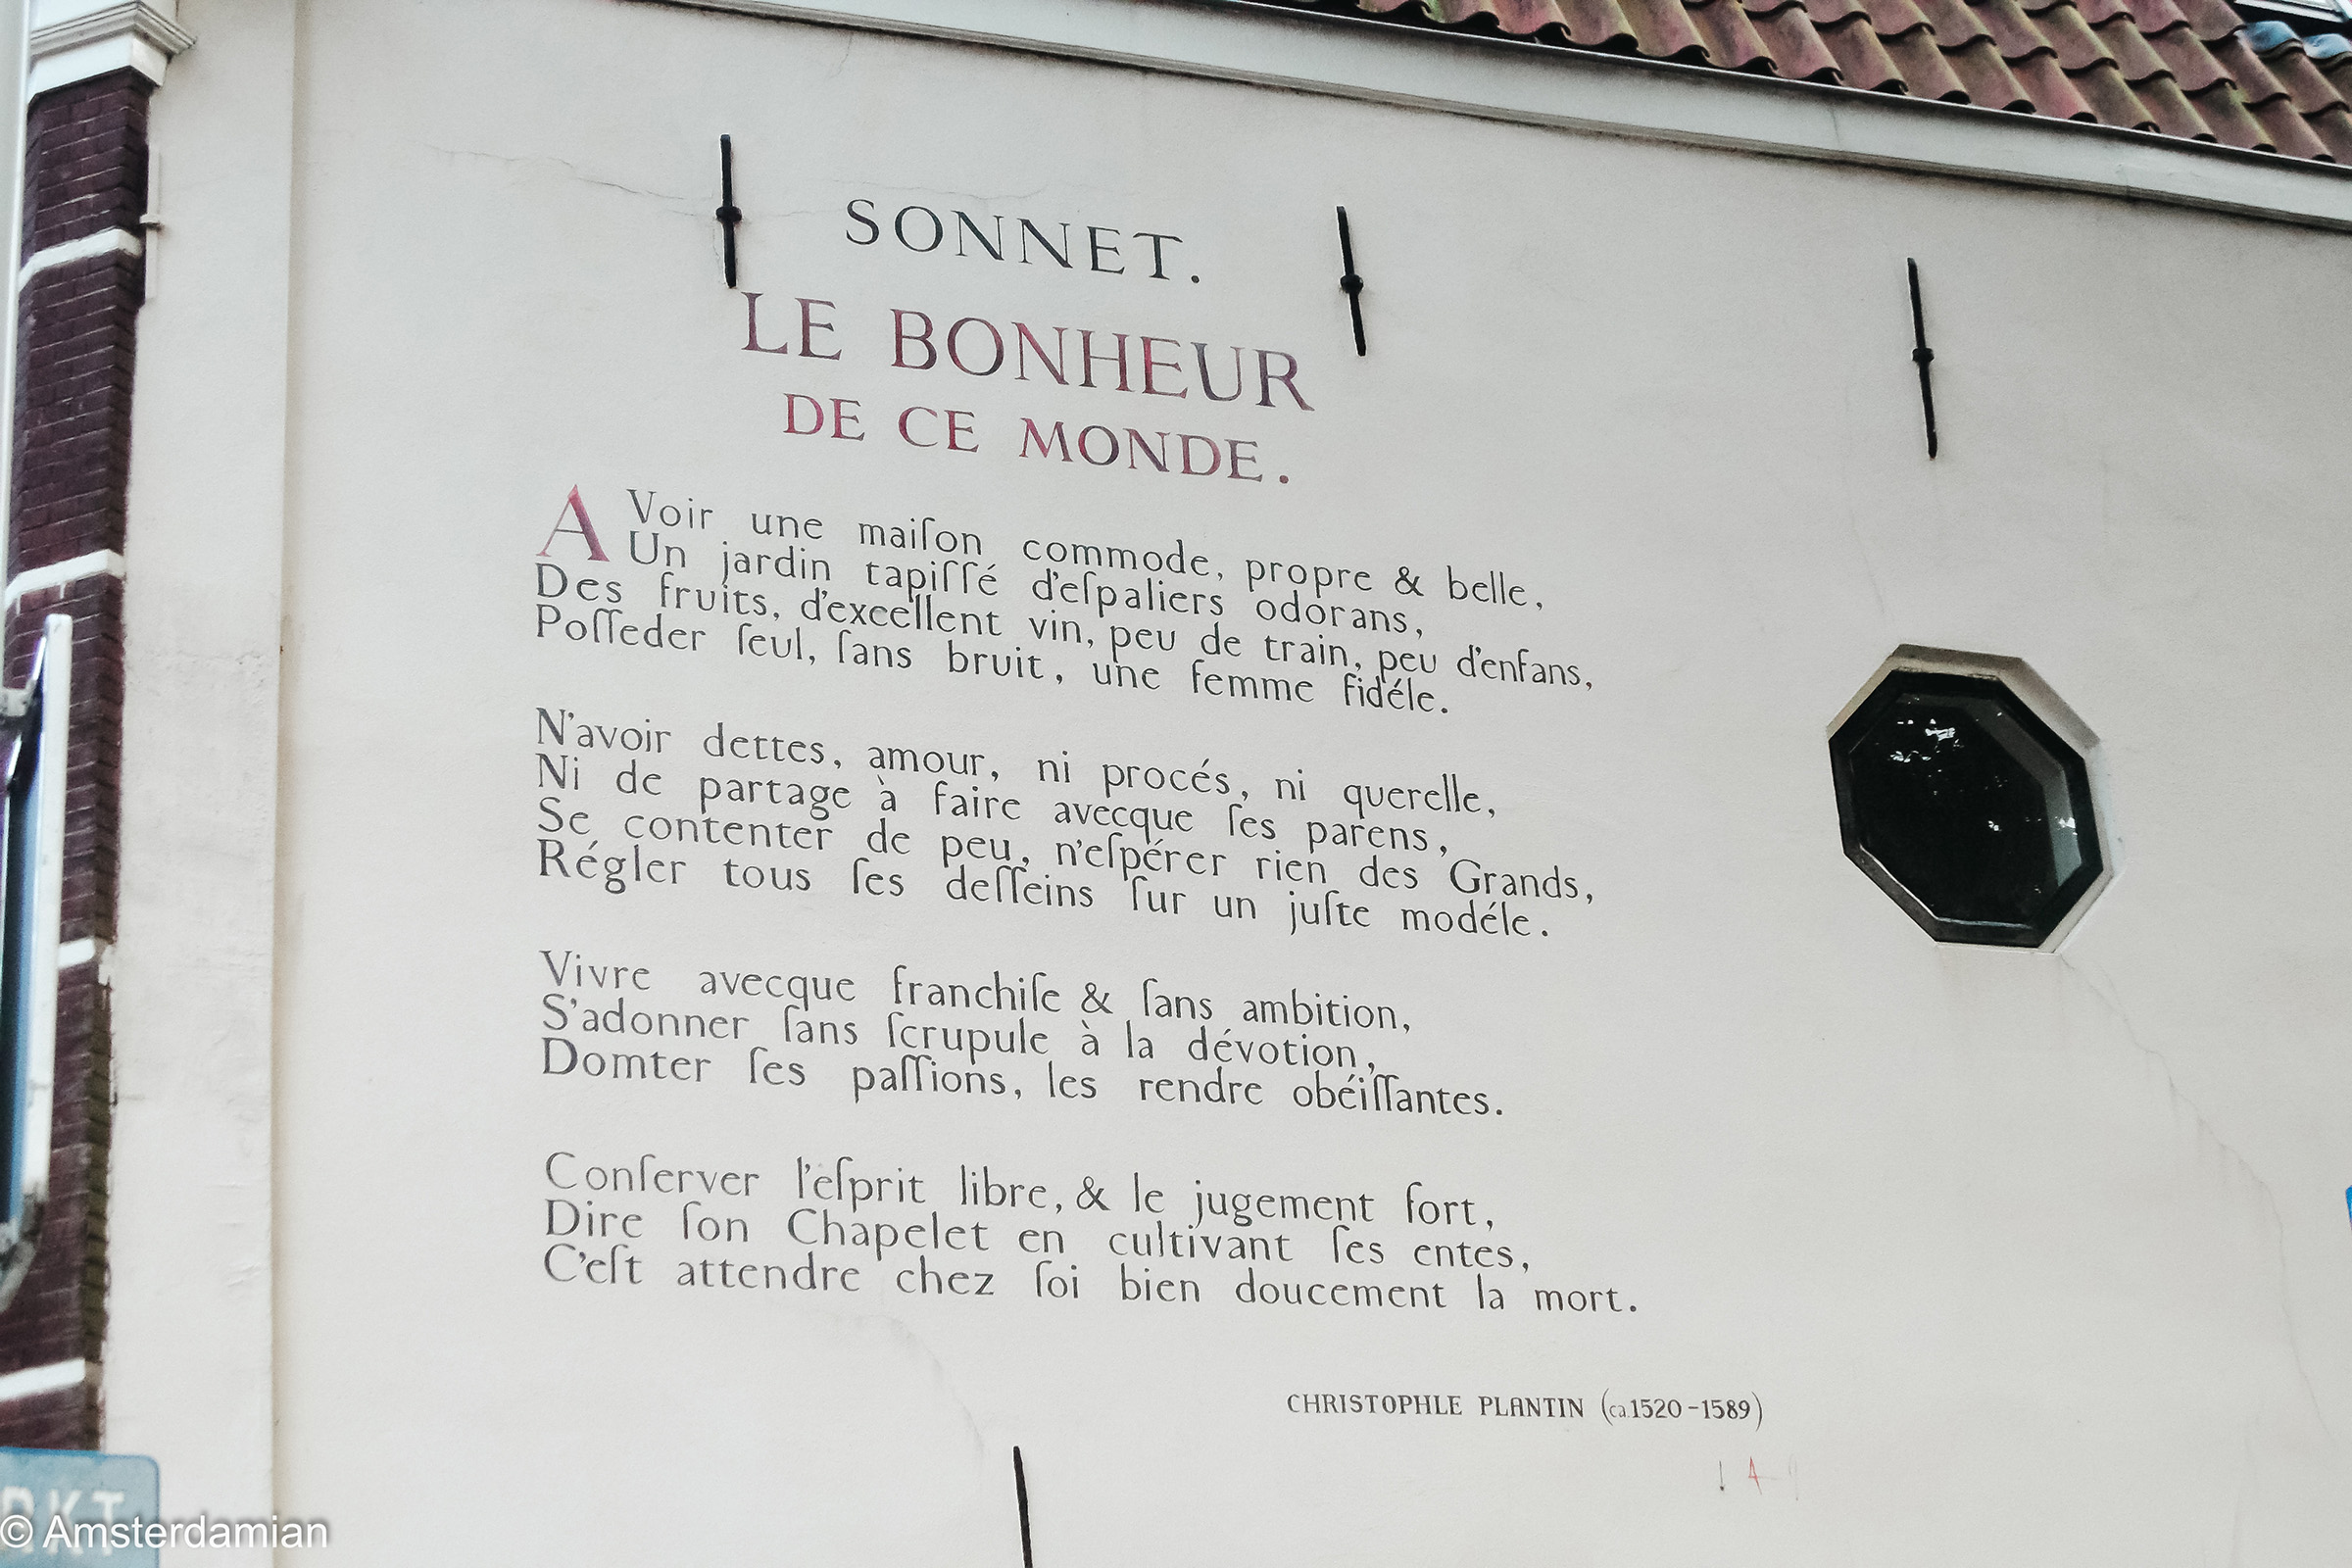 SONNET.
LE BONHEUR
DE CE MONDE.
AVoir une maiſon commode, propre & belle,
Un jardin tapiſſé d'eſpaliers odorans,
Des fruits, d'excellent vin, peu de train, peu d'enfans,
Poſſeder ſeul, ſans bruit, une femme fidéle.
N'avoir dettes, amour, ni procés, ni querelle,
Ni de partage à faire avecque ſes parens,
Se contenter de peu, n'eſpérer rien des Grands,
Régler tous ſes deſſeins ſur un juſte modéle.
Vivre avecque franchiſe & ſans ambition,
S'adonner ſans ſcrupule à la dévotion,
Domter ſes paſſions, les rendre obéiſſantes.
Conſerver l'eſprit libre, & le jugement fort,
Dire ſon Chapelet en cultivant ſes entes,
C'eſt attendre chez ſoi bien doucement la mort.
CHRISTOPHLE PLANTIN (ca.1520-1589)
© Amsterdamian